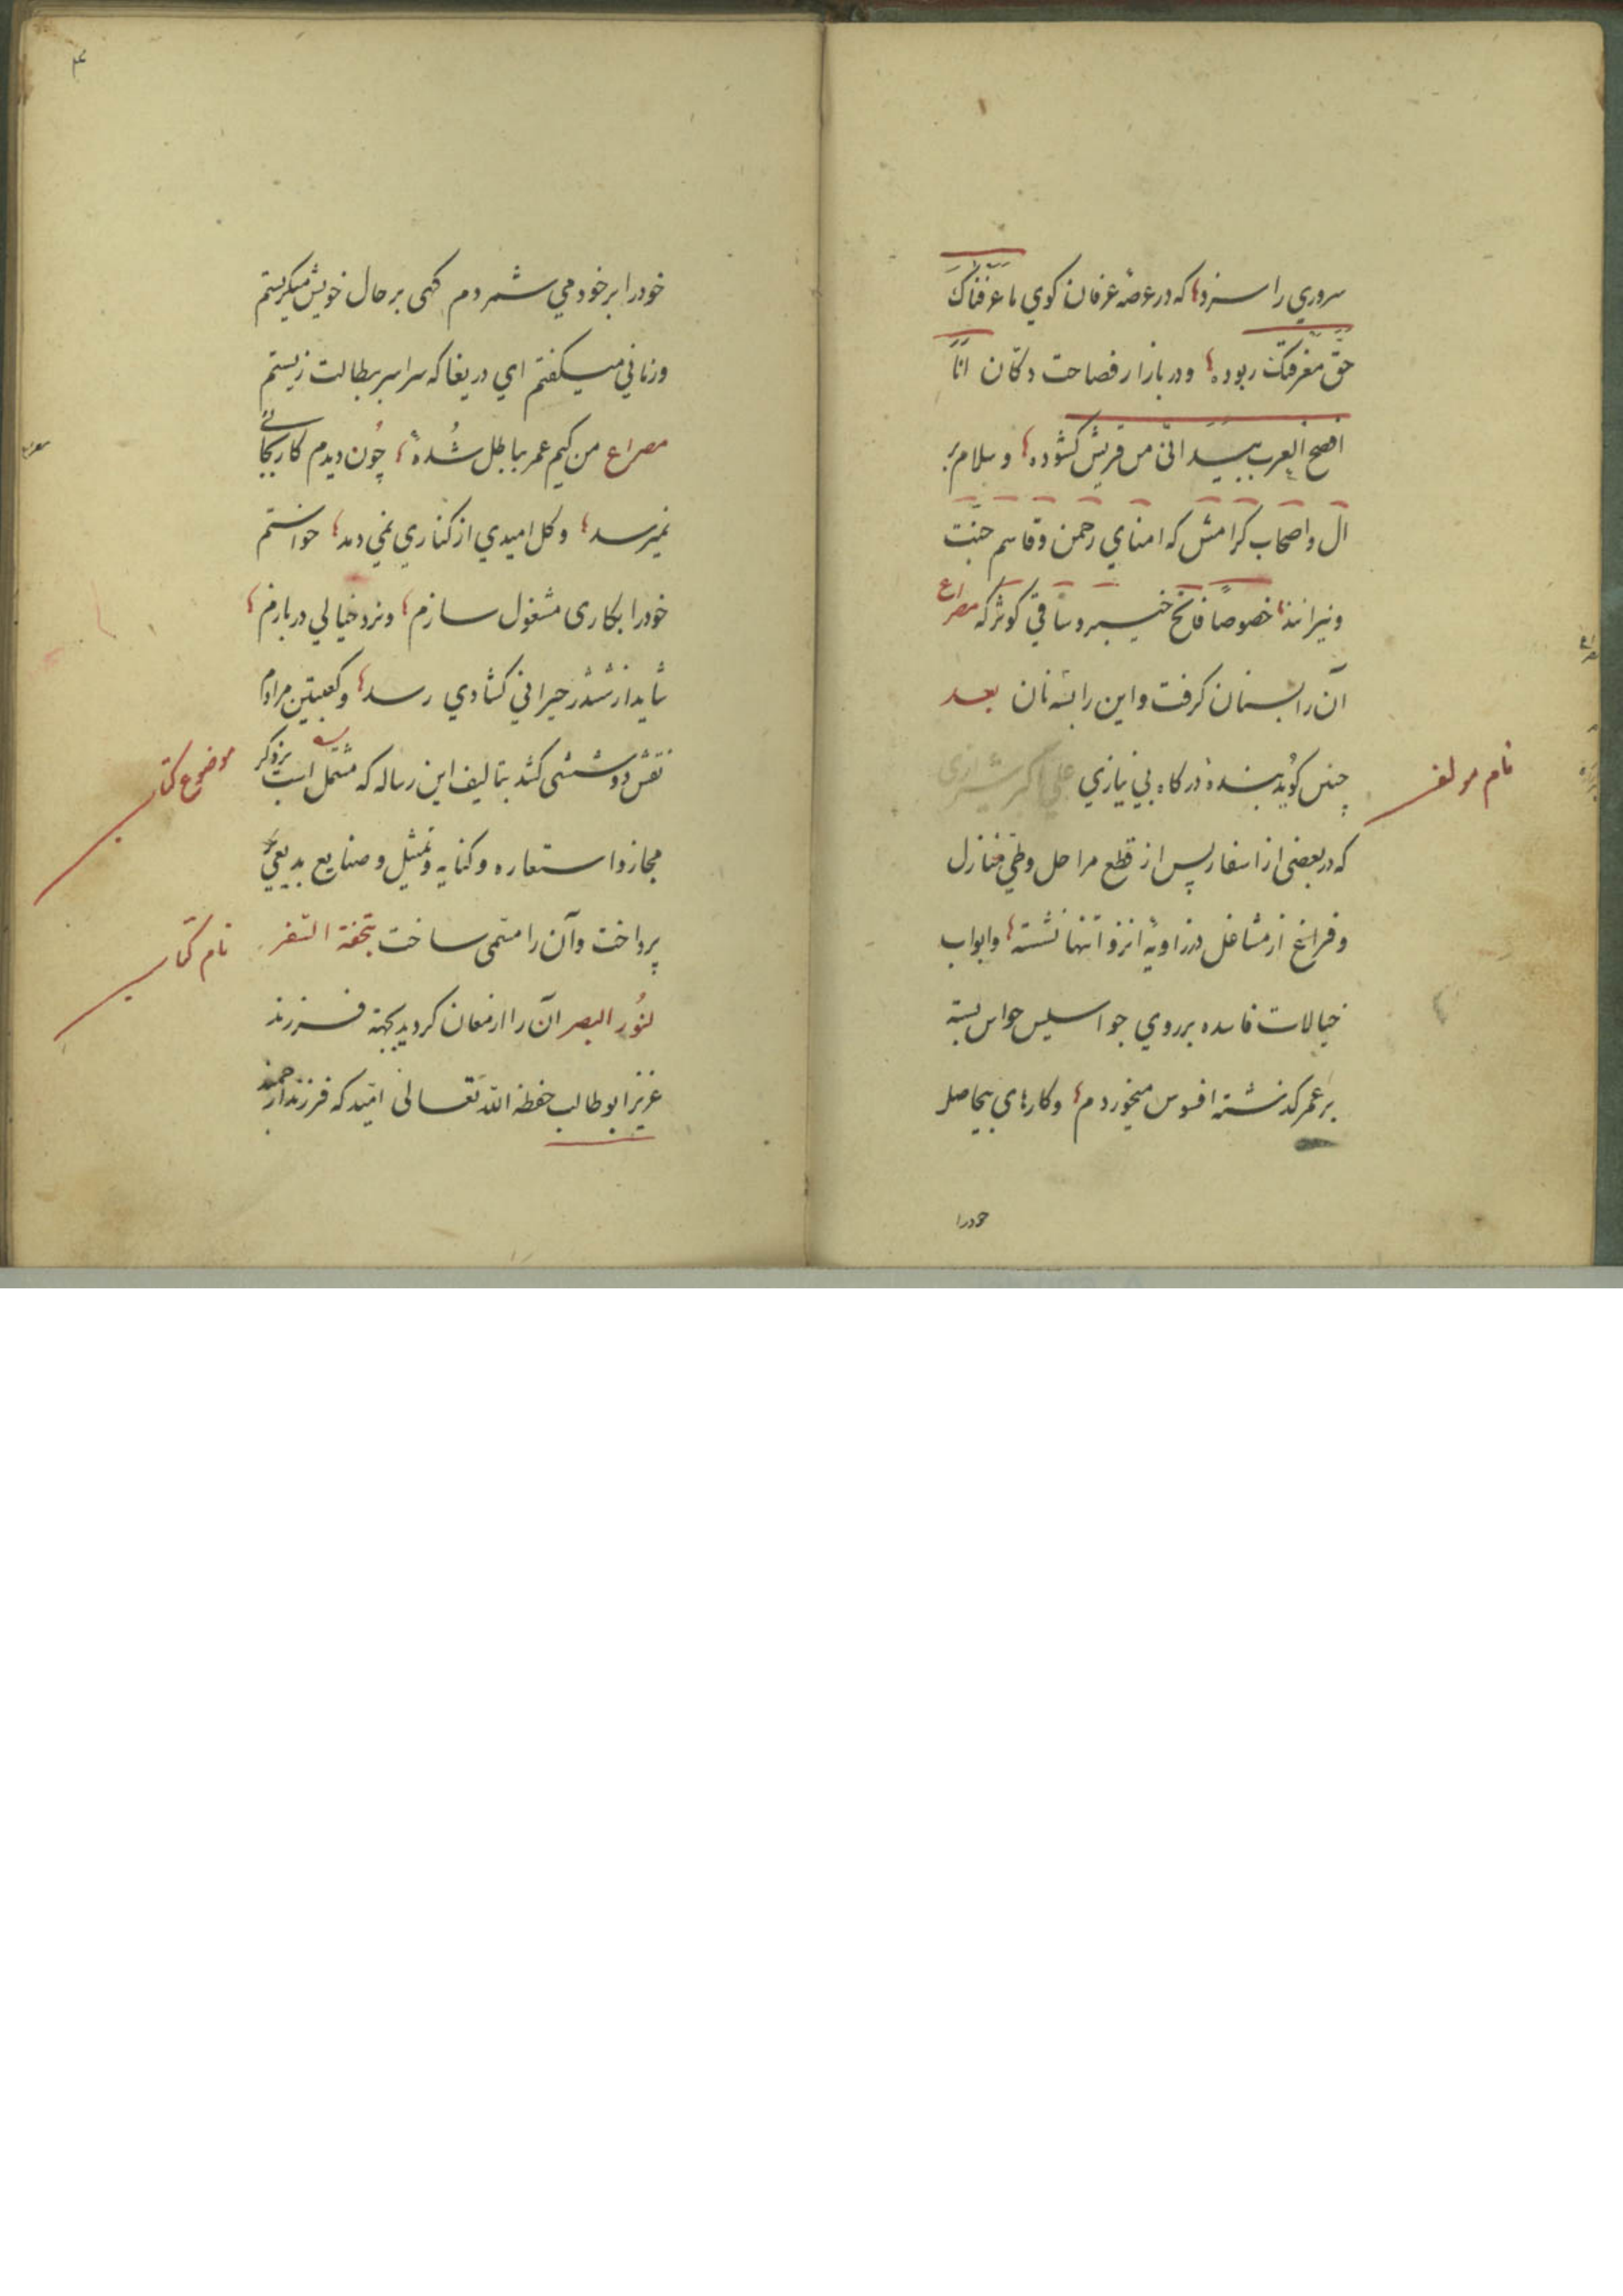 سروري را سزد که در عرصه عرفان کوي ما عرفناک
حق معرفتک ربوده و در بازار فصاحت دکان انا
افصح العرب بید انی من قریش کشوده و سلام بر
ال و اصحاب کرامش که امنای رحمن و قاسم جنت
و نیرانند خصوصا فاتح خیبر و ساقي کوثر که مصراع
آن را بسنان کرفت و این را بسه نان بعد
چنین کوید بنده درکاه بي نیازي علي اکبر شیرازی
نام مولف
که در بعضی از اسفار پس از قطع مراحل و طي منازل
و فراغ از مشاغل در زاویه انزوا تنها نشسته و ابواب
خیالات فاسده بر روي جواسیس حواس بسته
بر عمر کذشته افسوس میخوردم و کارهاي بیحاصل
خودرا
۴
خودرا بر خود مي شمردم کهی بر حال خویش میکریستم
و زماني میکفتم اي دریغا که سراسر ببطالت زیستم
مصراع من کیم عمر بباطل شده چون دیدم کار بجائے
نمیرسد و کل امیدي از کناري نمي دمد خواستم
خودرا بکاری مشغول سازم و نرد خیالي دربازم
شاید از ششدر حیراني کشادي رسد و کعبتین مرادم
نقش دو ششی کشد بتالیف این رساله که مشتمل است بر ذکر
موضوع کتاب
مجاز و استعاره و کنایه و تمثیل و صنایع بدیعیه
پرداخت و آن را مسمی ساخت بتحفة السفر
نام کتاب
لنور البصر آن را ارمغان کردید بجهة فرزند
عزیز ابو طالب حفظه الله تعالی امید که فرزند ارجمند